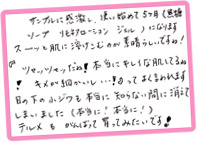 サンプルに感激し、使い始めて5ヶ月(黒糖
ソープ リセルローション ジェル)になります
スーッと肌に溶けこむのが素晴らしいですね!
ツヤッツヤッだね!本当にキレイな肌してるね
!キメが細かいし…!!ってよくきかれます
目の下の小ジワも本当に知らない間に消えて
しまいました(本当に!本当に!)
テルメも がんばって買ってみたいです!